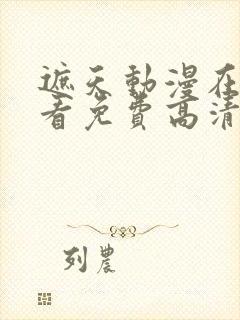 遮天動漫在
看免費高清
列農